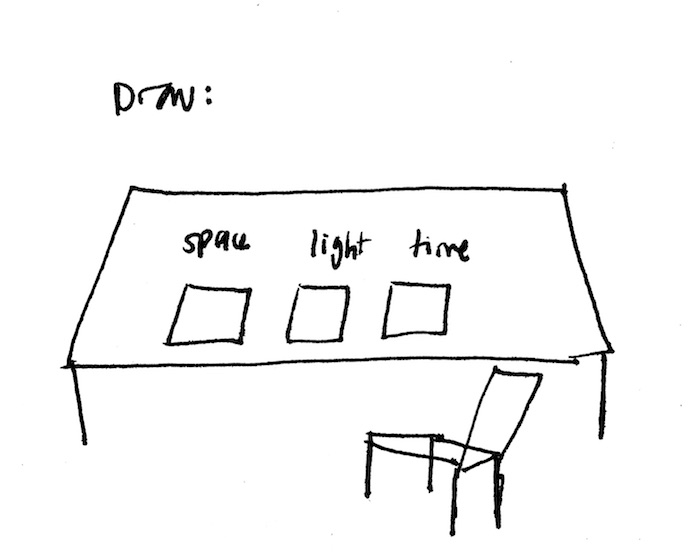 Draw:
space light time